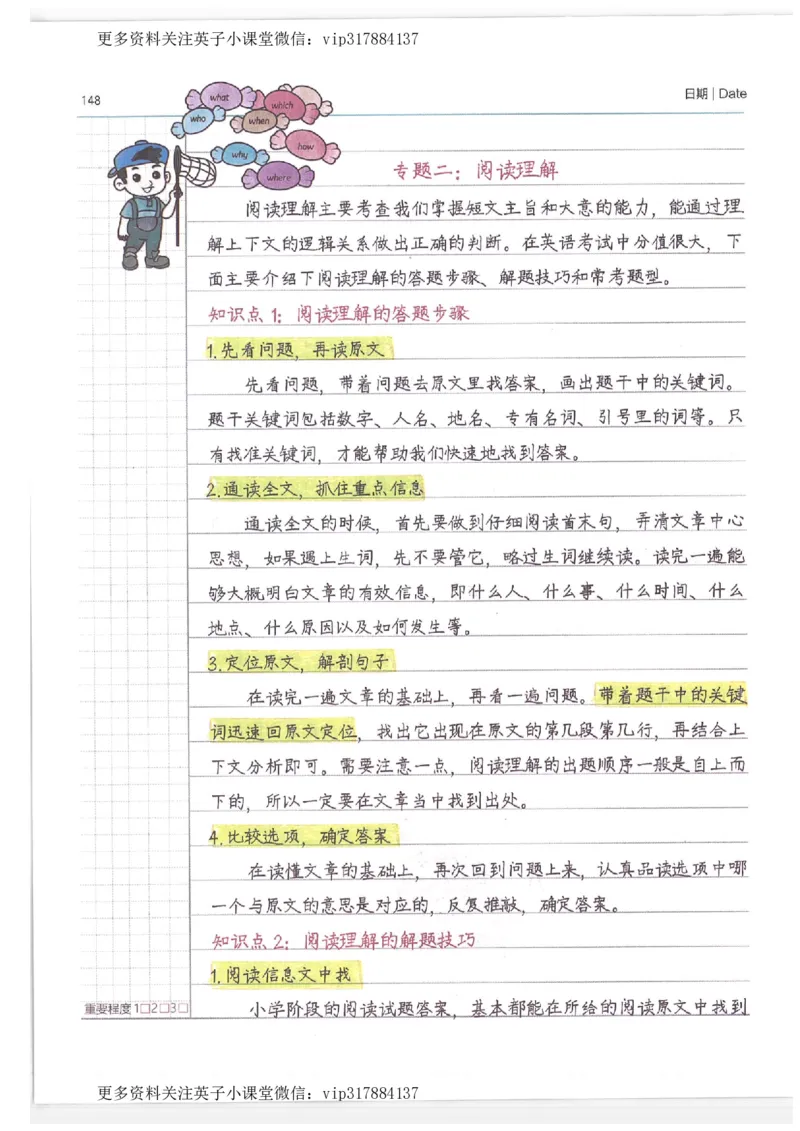 更多资料关注英子小课堂微信：vip317884137
148
日期 | Date
what
which
who
when
how
why
where
专题二：阅读理解
阅读理解主要考查我们掌握短文主旨和大意的能力，能通过理
解上下文的逻辑关系做出正确的判断。在英语考试中分值很大，下
面主要介绍下阅读理解的答题步骤、解题技巧和常考题型。
知识点 1：阅读理解的答题步骤
1.先看问题，再读原文
先看问题，带着问题去原文里找答案，画出题干中的关键词。
题干关键词包括数字、人名、地名、专有名词、引号里的词等。只
有找准关键词，才能帮助我们快速地找到答案。
2.通读全文，抓住重点信息
通读全文的时候，首先要做到仔细阅读首末句，弄清文章中心
思想，如果遇上生词，先不要管它，略过生词继续读。读完一遍能
够大概明白文章的有效信息，即什么人、什么事、什么时间、什么
地点、什么原因以及如何发生等。
3.定位原文，解剖句子
在读完一遍文章的基础上，再看一遍问题。带着题干中的关键
词迅速回原文定位，找出它出现在原文的第几段第几行，再结合上
下文分析即可。需要注意一点，阅读理解的出题顺序一般是自上而
下的，所以一定要在文章当中找到出处。
4.比较选项，确定答案
在读懂文章的基础上，再次回到问题上来，认真品读选项中哪
一个与原文的意思是对应的，反复推敲，确定答案。
知识点 2：阅读理解的解题技巧
1.阅读信息文中找
重要程度 1□2□3□
小学阶段的阅读试题答案，基本都能在所给的阅读原文中找到
更多资料关注英子小课堂微信：vip317884137